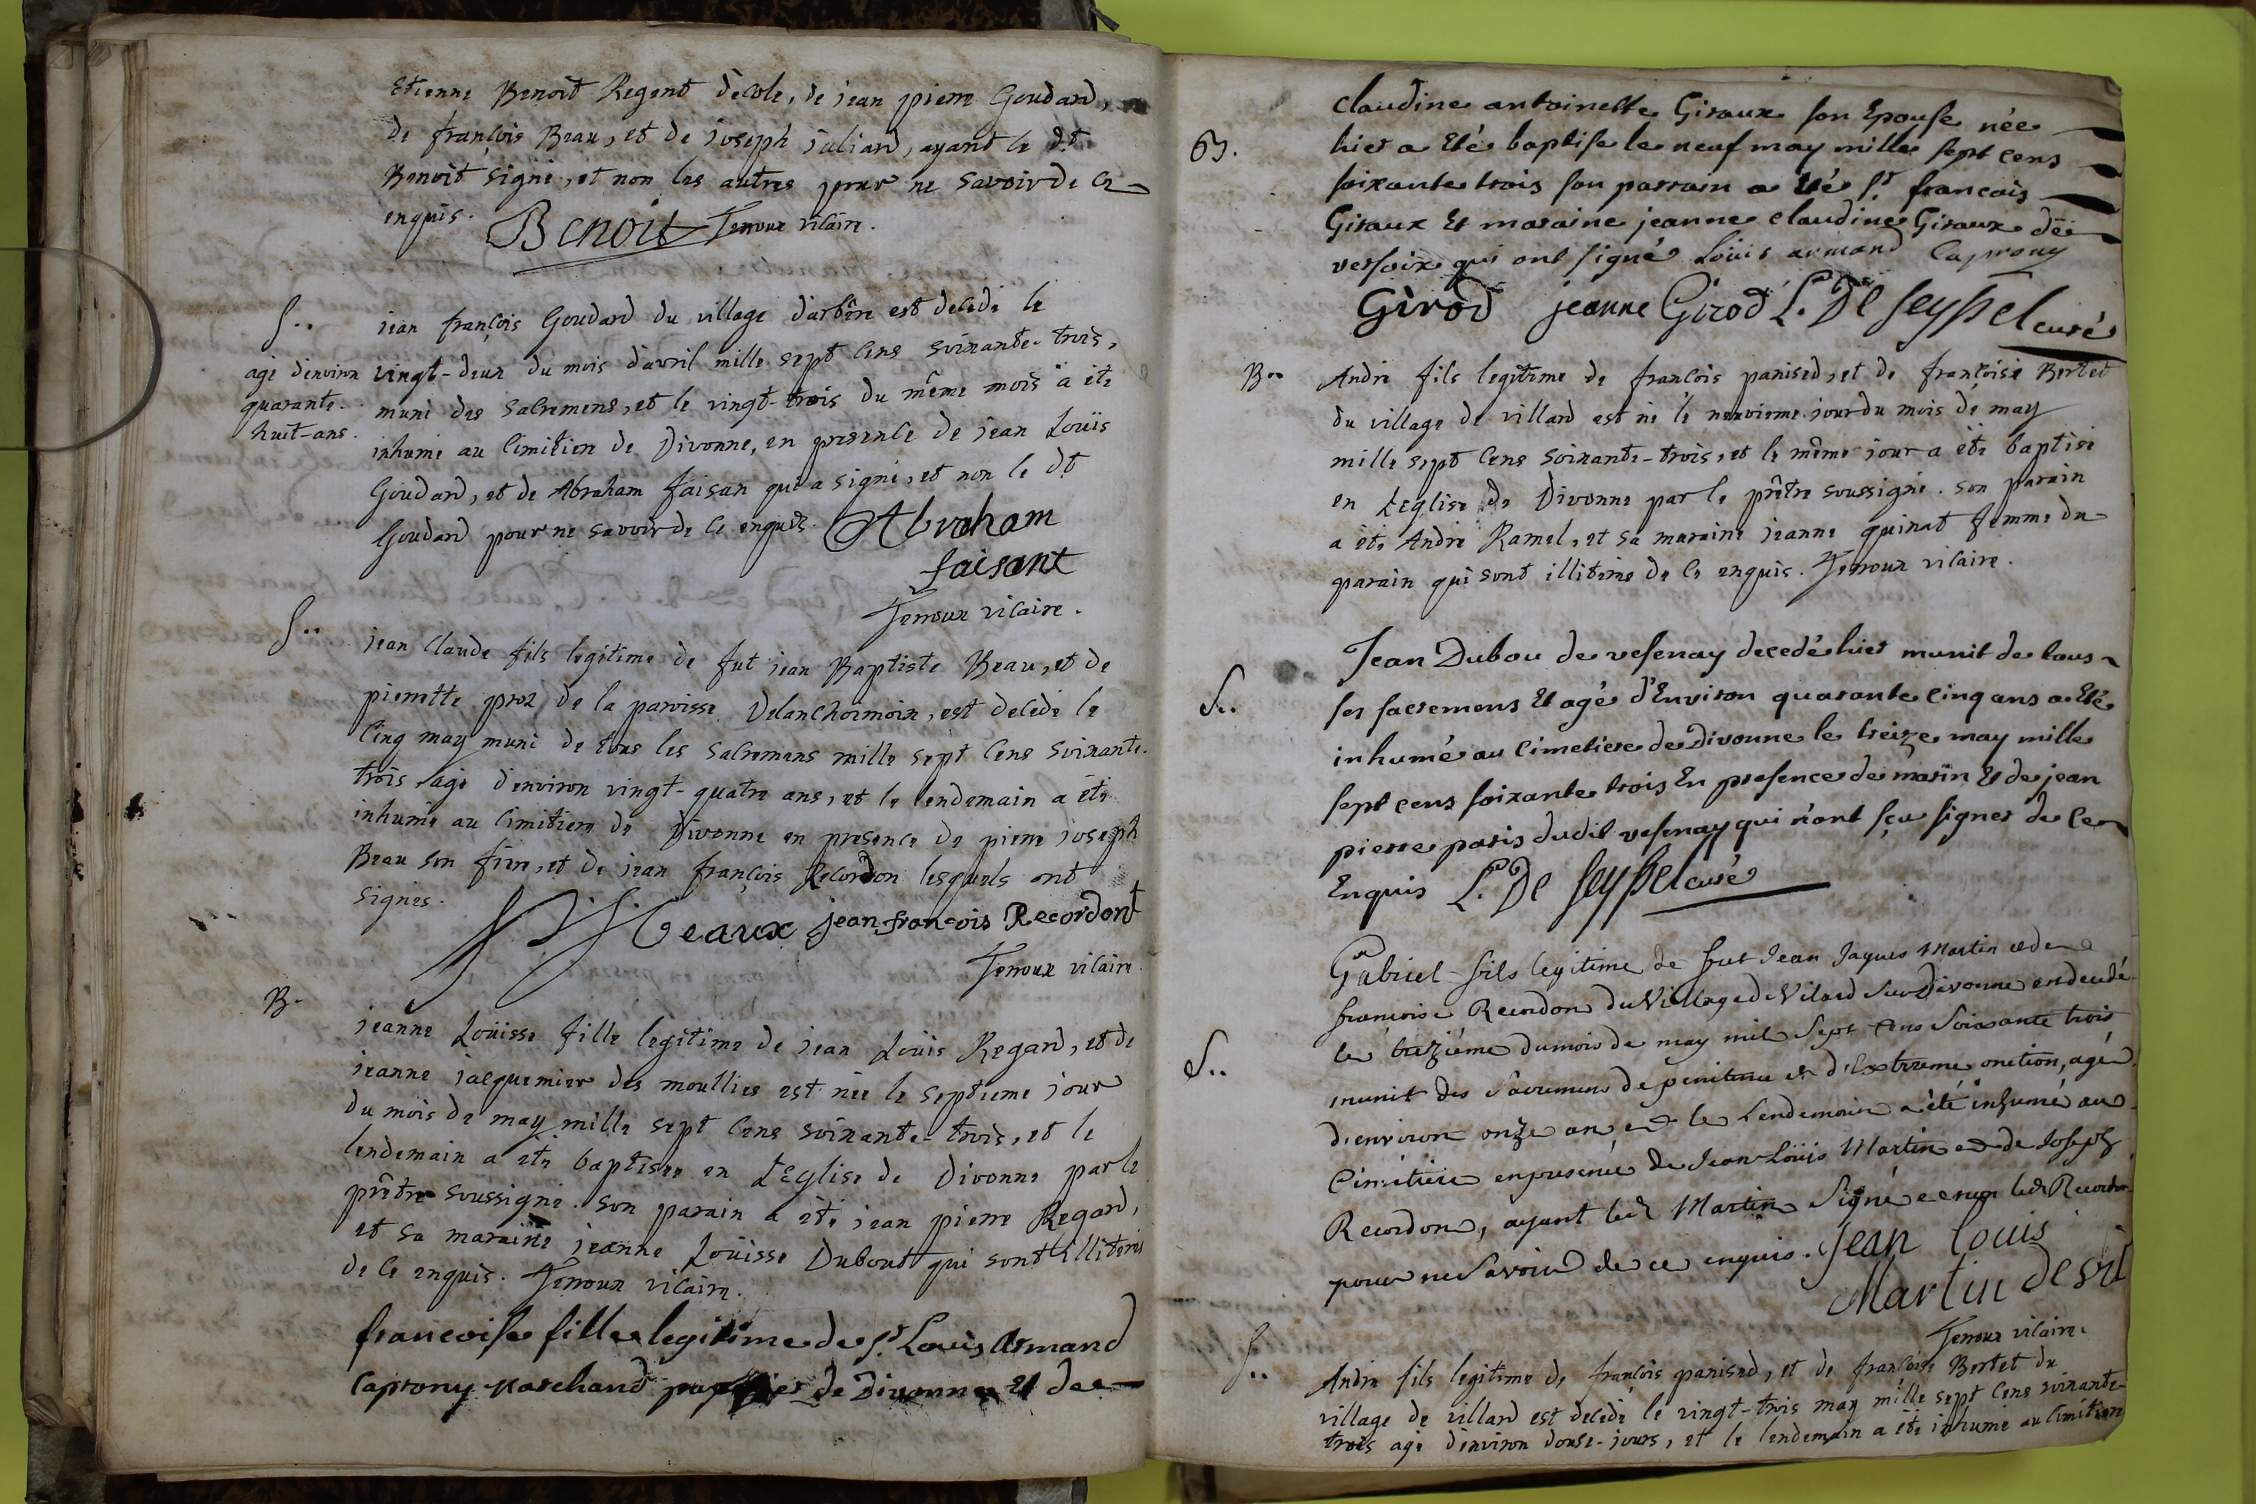 Etienne Benoit Regent d'ecole, de jean pierre Goudard,
de françois Beau, et de joseph juliard, ayant le dt
Benoit signé, et non les autres pour ne savoir de ce
enquis. Benoit Jenoux vicaire.
S..
jean françois Goudard du village d'arbère est decedé le
agé d'environ
quarante-
huit-ans.
vingt-deux du mois d'avril mille sept cens soixante-trois,
muni des sacremens, et le vingt-trois du même mois a été
inhumé au cimitiere de Divonne, en presence de jean Loüis
Goudard, et de Abraham faisan qui a signé, et non le dt
Goudard pour ne savoir de ce enquis. Abraham
faisant
Jenoux vicaire.
S..
jean Claude fils legitime de fut jean Baptiste Beau, et de
pierrette proz de la paroisse Delanchoimoix, est decedé le
cinq may muni de tous les sacremens mille sept cens soixante-
trois agé d'environ vingt-quatre ans, et le lendemain a été
inhumé au cimitiere de Divonne en presence de pierre joseph
Beau son frere, et de jean françois Recordon lesquels ont
signés.
Beaux jean francois Recordont
Jenoux vicaire.
B.
jeanne Loüisse fille legitime de jean Loüis Regard, et de
jeanne jacquemier des moullies est née le septieme jour
du mois de may mille sept cens soixante-trois, et le
lendemain a été baptisée en L'Eglise de Divonne par le
prêtre soussigné. son parain a été jean pierre Regard,
et sa maraine jeanne Loüisse Dubout qui sont illiterés
de ce enquis. Jenoux vicaire.
francoise fille legitime de sr Louis Armand
Caprony marchand papetier de Divonne et de
claudine antoinette Giraux son Epouse née
B.
hier a Eté baptise le neuf may mille sept cens
soixante trois son parrain a Eté sr francois
Giraux Et maraine jeanne claudine Giraux de
versoix qui ont signé Louis armand Caprony
Girod jeanne Girod L. De Seyssel curé
B..
André fils legitime de françois panised, et de françoise Bertet
du village de villard est né le neuvieme jour du mois de may
mille sept cens soixante-trois, et le même jour a été baptisé
en L'eglise de Divonne par le prêtre soussigné. son parain
a été André Ramel, et sa maraine jeanne quinat femme du
parain qui sont illiteres de ce enquis. Jenoux vicaire.
Jean Dubou de vesenay decedé hier munit de tous
S..
ses sacremens Et agé d'Environ quarante cinq ans a Eté
inhumé au cimetiere de Divonne le treize may mille
sept cens soixante trois En presence de marin Et de jean
pierre paris dudit vesenay qui n'ont sçu signer de ce
Enquis L. De Seyssel curé
Gabriel fils legitime de fut Jean Jaques Martin et de
françoise Recordon du Village de Vilard sur Divonne est decedé
le treiziéme du mois de may mil sept cens soixante trois
S..
munit des sacremens de penitence et d'Extreme onction, agé
d'environ onze ans et le Lendemain a été inhumé au
Cimitiere en presence de Jean-Loüis Martin et de Joseph
Recordon, ayant led. Martin Signé et non led. Recordon
pour ne savoir de ce enquis. Jean Louis
Martin de vil
Jenoux vicaire.
S..
André fils legitime de françois panised, et de françoise Bertet du
village de villard est decedé le vingt-trois may mille sept cens soixante-
trois agé d'environ douse-jours, et le lendemain a été inhumé au cimitiere